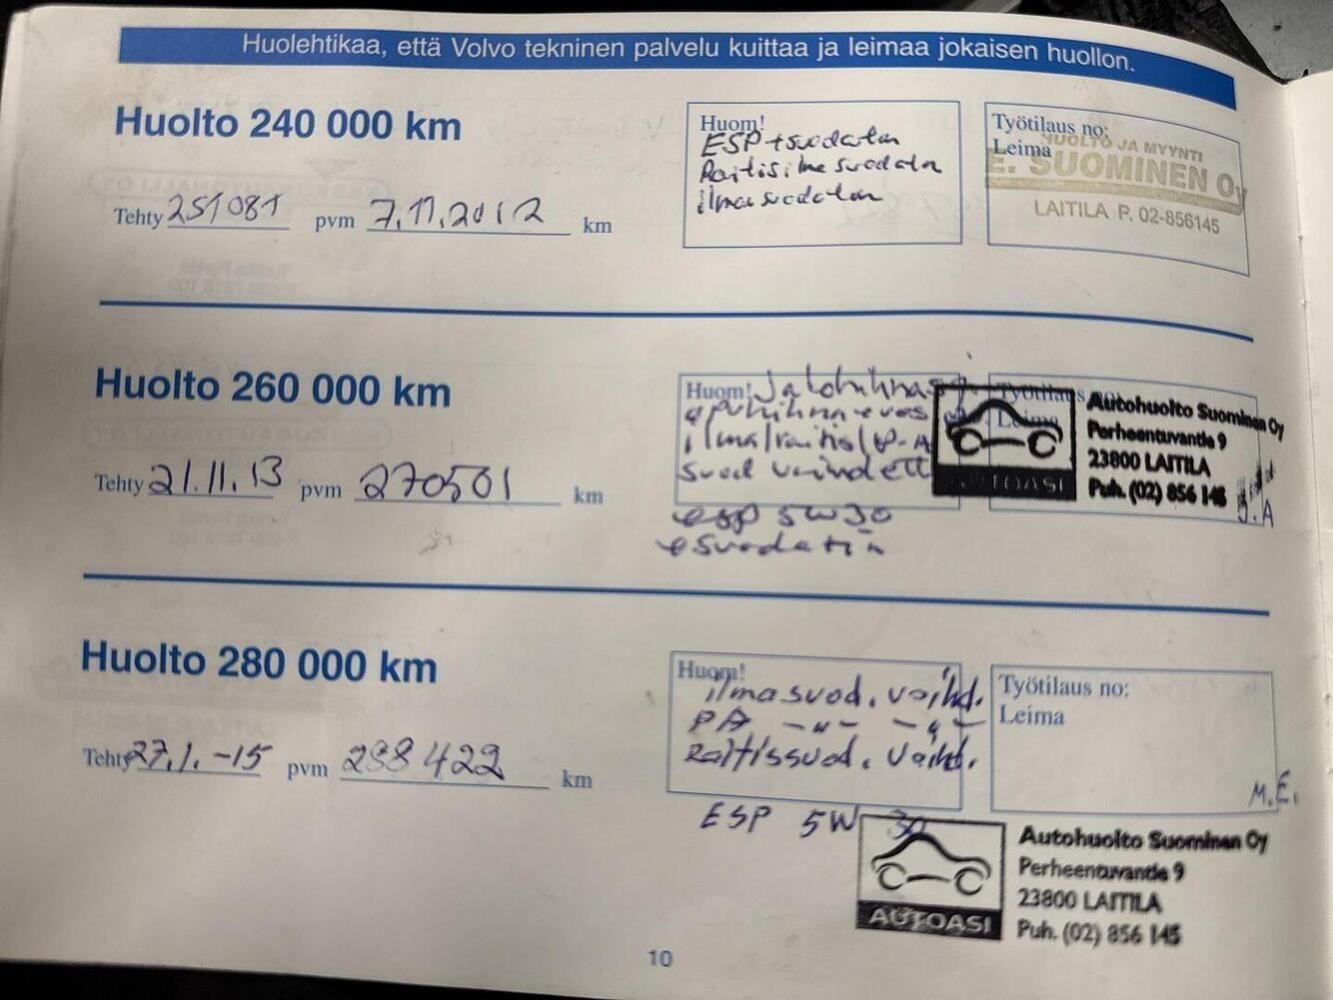 Huolehtikaa, että Volvo tekninen palvelu kuittaa ja leimaa jokaisen huollon.
Huolto 240 000 km
Tehty 251081 pvm 7.11.2012 km
Huom!
ESP + suodatin
Raitisilmasuodatin
ilmasuodatin
Työtilaus no:
Leima
HUOLTO JA MYYNTI
E. SUOMINEN Oy
LAITILA P. 02-856145
Huolto 260 000 km
Tehty 21.11.13 pvm 270501 km
Huom! Jakohihnas
apuhihna
ilma/raitis/P-A
suod vaihdett
esp 5W30
Työtilaus
Leima
AUTOASI
Autohuolto Suominen Oy
Perheentuvantie 9
23800 LAITILA
Puh. (02) 856 145
J.A
Huolto 280 000 km
Tehty 27.1.-15 pvm 288422 km
Huom!
ilmasuod. vaihd.
PA -"- -"-
Raitissuod. vaihd.
ESP 5W 30
Työtilaus no:
Leima
M.E.
AUTOASI
Autohuolto Suominen Oy
Perheentuvantie 9
23800 LAITILA
Puh. (02) 856 145
10